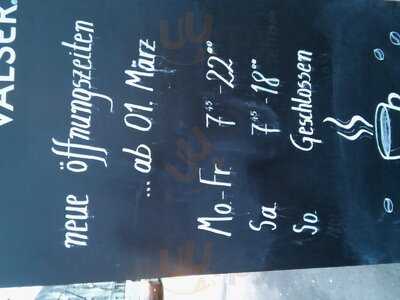 VALSER
neue öffnungszeiten
... ab 01. März
Mo-Fr 7⁴⁵ -22⁰⁰
Sa 7⁴⁵ -18⁰⁰
So Geschlossen